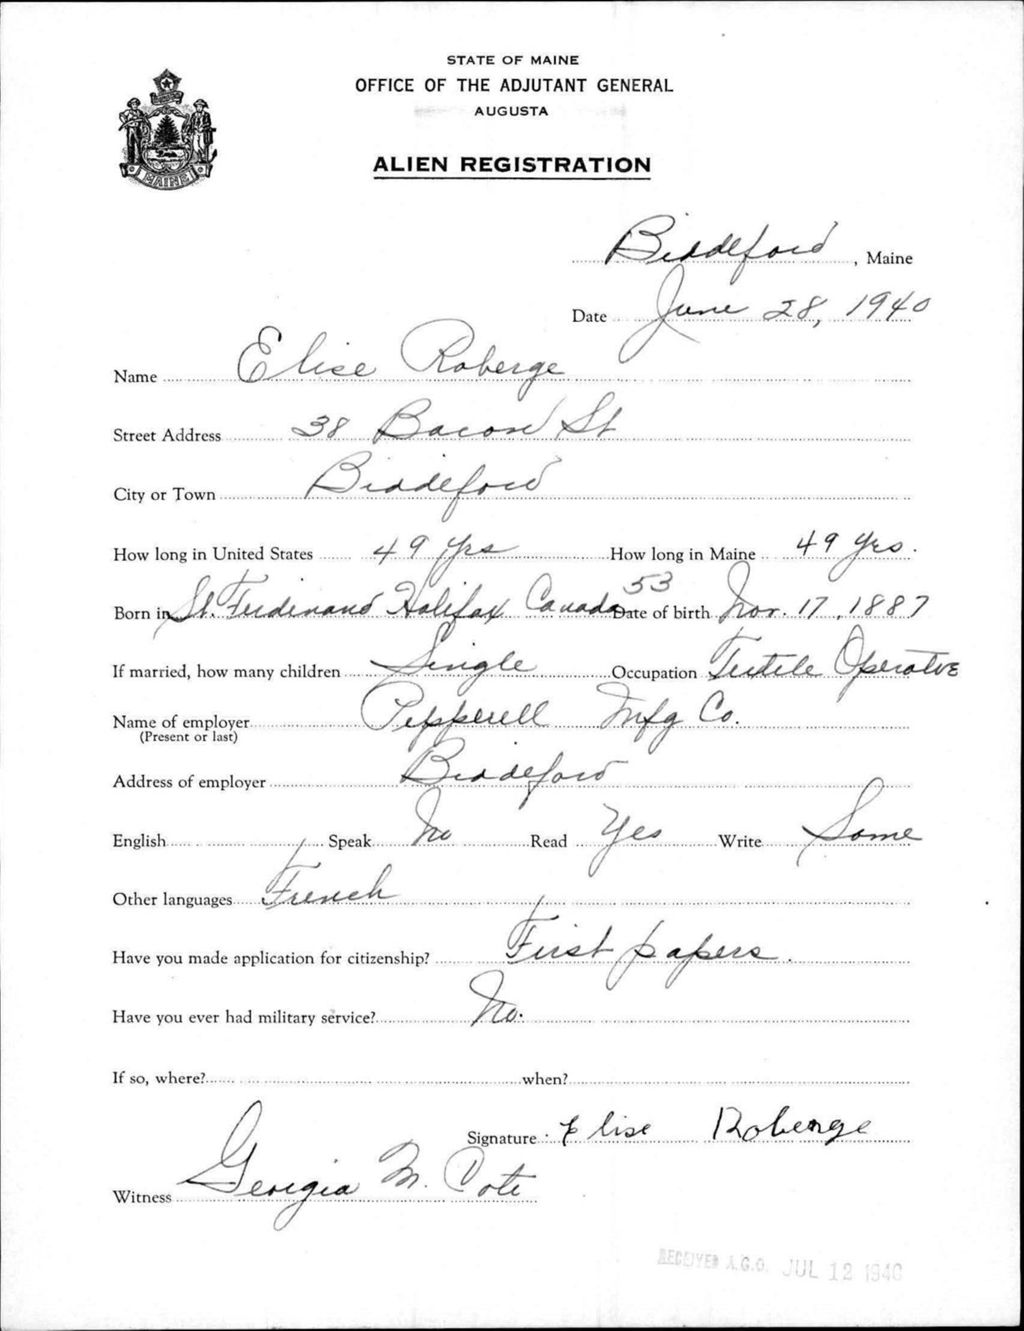 STATE OF MAINE
OFFICE OF THE ADJUTANT GENERAL
AUGUSTA
ALIEN REGISTRATION
MAINE
Biddeford, Maine
Date June 28, 1940
Name Elise Roberge
Street Address 38 Bacon St
City or Town Biddeford
How long in United States 49 yrs How long in Maine 49 yrs.
53
Born in St. Ferdinand Halifax Canada Date of birth Nov. 17, 1887
If married, how many children Single Occupation Textile Operative
Name of employer Pepperell Mfg Co.
(Present or last)
Address of employer Biddeford
English Speak No Read Yes Write Some
Other languages French
Have you made application for citizenship? First papers.
Have you ever had military service? No.
If so, where? when?
Signature Elise Roberge
Witness Georgia M. Cote
RECEIVED A.G.O. JUL 12 1940